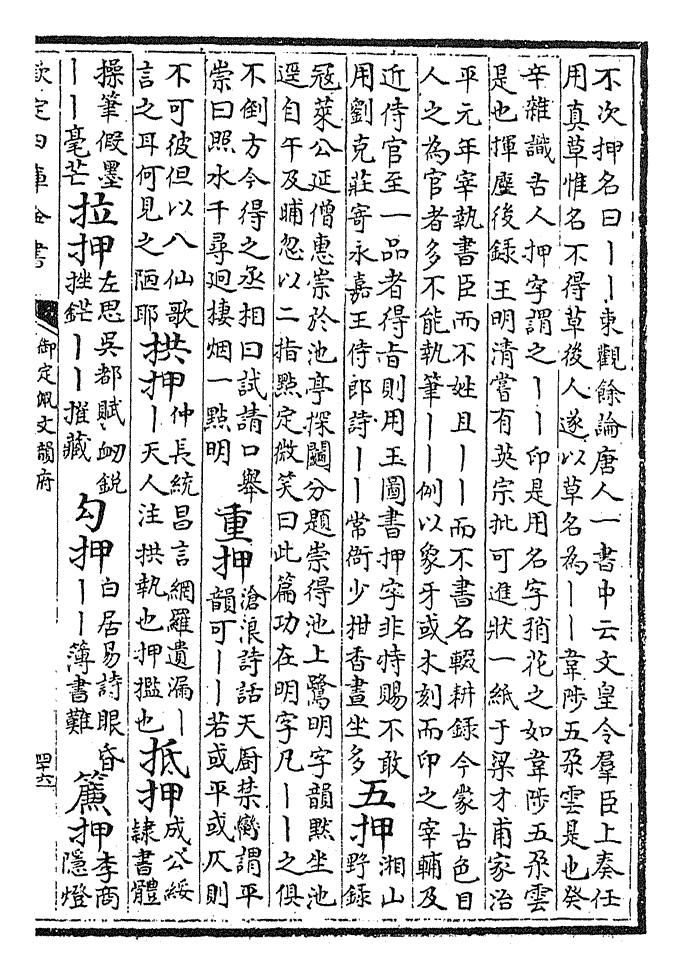 不次押名曰丨丨東觀餘論唐人一書中云文皇令羣臣上奏任
用真草惟名不得草後人遂以草名為丨丨韋陟五朶雲是也癸
辛雜識古人押字謂之丨丨印是用名字稍花之如韋陟五朶雲
是也揮麈後錄王明清嘗有英宗批可進狀一紙于梁才甫家治
平元年宰執書臣而不姓且丨丨而不書名輟耕錄今蒙古色目
人之為官者多不能執筆丨丨例以象牙或木刻而印之宰輔及
近侍官至一品者得㫖則用玉圖書押字非特賜不敢
用劉克莊寄永嘉王侍郎詩丨丨常衙少拑香晝坐多
五押
湘山
野錄
冦萊公延僧惠崇於池亭探鬮分題崇得池上鷺明字韻黙坐池
逕自午及晡忽以二指點定微笑曰此篇功在明字凡丨丨之俱
不倒方今得之丞相曰試請口舉
崇曰照水千尋迥棲烟一點明
重押
滄浪詩話天厨禁臠謂平
韻可丨丨若或平或仄則
不可彼但以八仙歌
言之耳何見之陋耶
拱押
仲長統昌言網羅遺漏丨
丨天人注拱執也押檻也
抵押
成公綏
隸書體
操筆假墨
丨丨毫芒
拉押
左思吳都賦刼鋭
挫鋩丨丨摧藏
勾押
白居易詩眼昏
丨丨薄書難
簾押
李商
隱燈
欽定四庫全書
御定佩文韻府
四十六